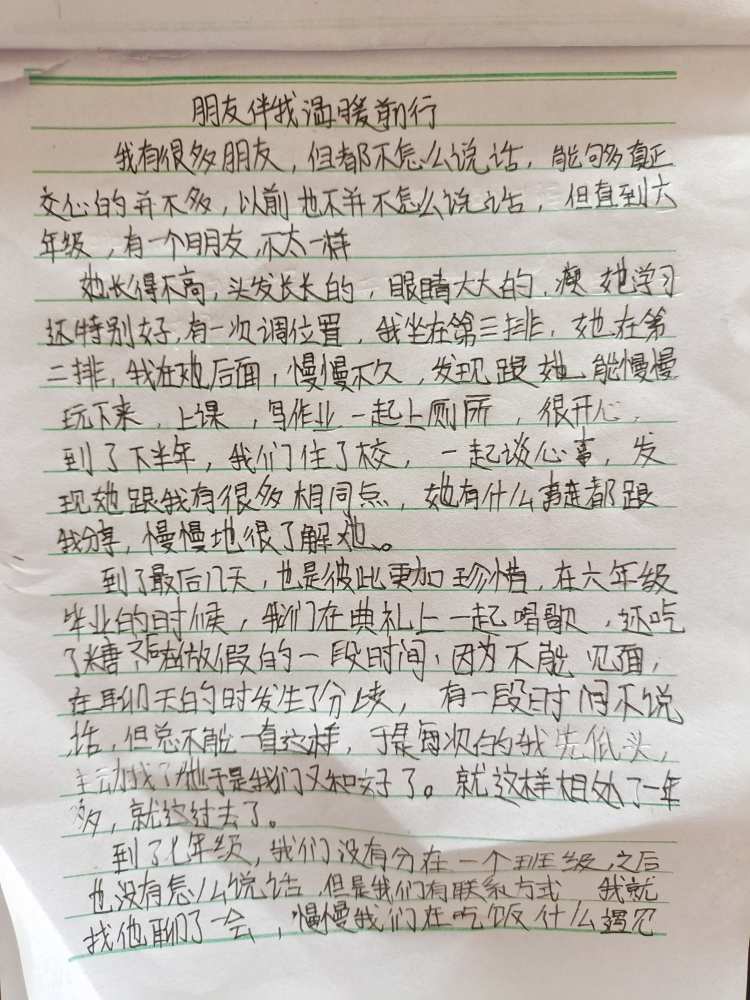 朋友伴我温暖前行
我有很多朋友，但都不怎么说话，能够多真正
交心的并不多，以前也不并不怎么说话，但直到六
年级，有一个朋友，不太一样
她长得不高，头发长长的，眼睛大大的，瘦 她学习
还特别好，有一次调位置，我坐在第三排，她在第
二排，我在她后面，慢慢不久，发现跟她能慢慢
玩下来，上课，写作业一起上厕所，很开心，
到了下半年，我们住了校，一起谈心事，发
现她跟我有很多相同点，她有什么事都跟
我分享，慢慢地很了解她。
到了最后几天，也是彼此更加珍惜，在六年级
毕业的时候，我们在典礼上一起唱歌，还吃
了糖 在放假的一段时间，因为不能见面，
在聊天的时发生了分歧，有一段时间不说
话，但总不能一直这样，于是每次的我先低头，
主动找了她于是我们又和好了。就这样相处了一年
多，就这过去了。
到了七年级，我们没有分在一个班级，之后
也没有怎么说话，但是我们有联系方式 我就
找他聊了一会，慢慢我们在吃饭什么遇见